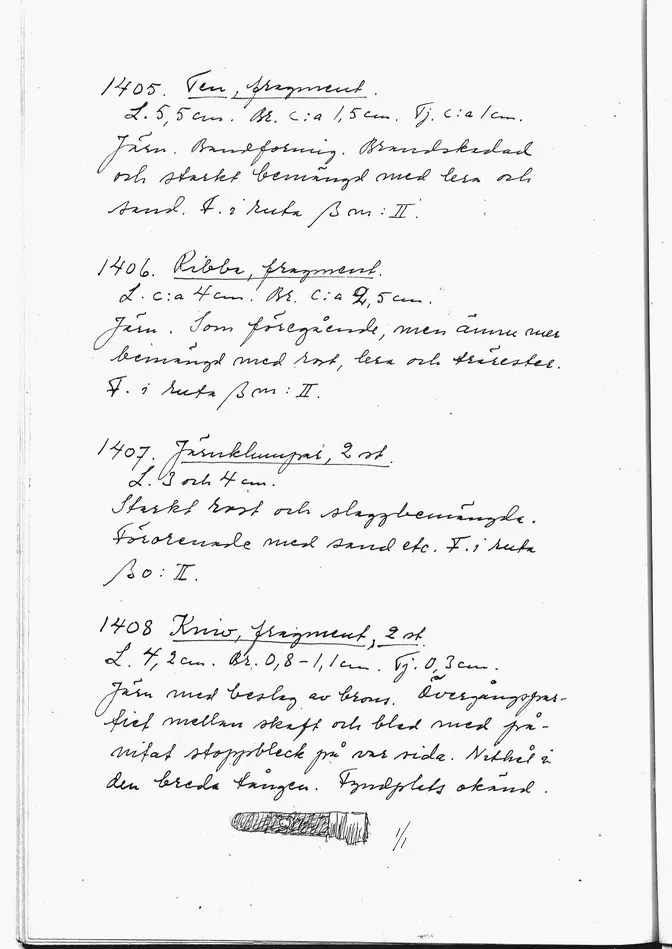 1405. Ten, fragment.
L. 5,5 cm. Br. c:a 1,5 cm. Tj. c:a 1 cm.
Järn. Bandformig. Brandskadad
och starkt bemängd med lera och
sand. F. i ruta βm:II.
1406. Ribba, fragment.
L. c:a 4 cm. Br. c:a 2,5 cm.
Järn. Som föregående, men ännu mer
bemängd med rost, lera och trärester.
F. i ruta βm:II.
1407. Järnklumpar, 2 st.
L. 3 och 4 cm.
Starkt rost och slaggbemängda.
Förorenade med sand etc. F. i ruta
βo:II.
1408 Kniv, fragment, 2 st
L. 4,2 cm. Br. 0,8-1,1 cm. Tj. 0,3 cm.
Järn med beslag av brons. Övergångspar-
tiet mellan skaft och blad med på-
nitat stoppbleck på var sida. Nithål i
den breda tången. Fyndplats okänd.
1/1